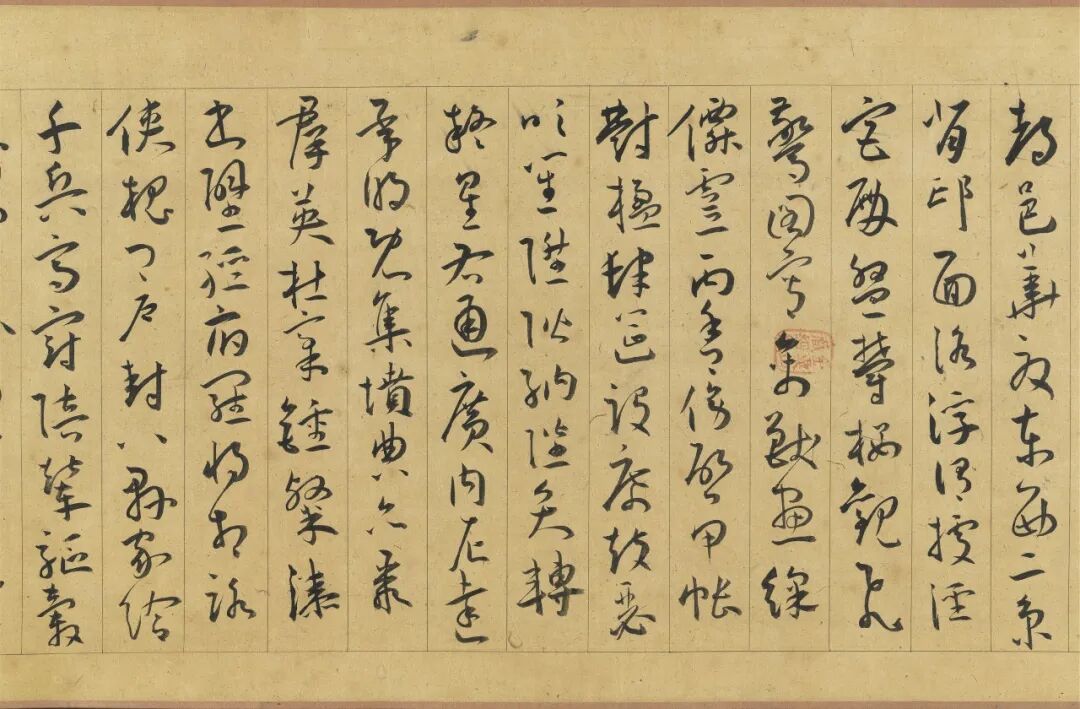 都邑華夏東西二京
背邙面洛浮渭據涇
宮殿盤鬱樓觀飛
驚圖寫禽獸畫綵
僊靈丙舍傍啟甲帳
對楹肆筵設席鼓瑟
吹笙陞階納陛弁轉
疑星右通廣內左達
承明既集墳典亦聚
羣英杜稾鍾隸漆
書壁經府羅將相路
俠槐卿戶封八縣家給
千兵高冠陪輦驅轂